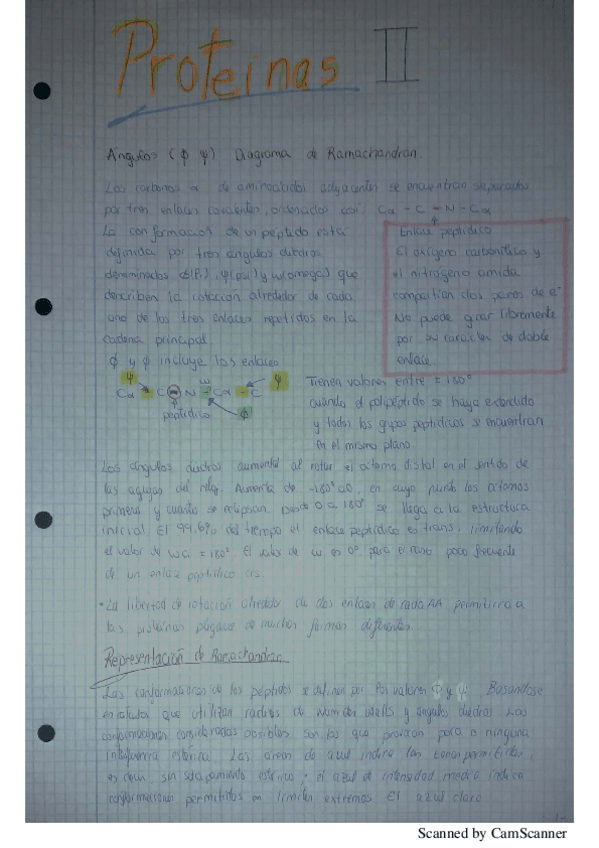 Proteinas II
Ángulos (ϕ ψ) Diagrama de Ramachandran.
Los carbonos α de aminoácidos adyacentes se encuentran separados
por tres enlaces covalentes, ordenados así Cα - C = N - Cα
La conformación de un péptido está
definida por tres ángulos diedros
denominados ϕ(Fi), ψ(psi) y ω(omega) que
describen la rotación alrededor de cada
uno de los tres enlaces repetidos en la
cadena principal
Enlace peptídico
El oxígeno carbonílico y
el nitrógeno amida
comparten dos pares de e⁻
No puede girar libremente
por su carácter de doble
enlace.
ϕ y ψ incluye los enlaces
ψ ω ψ
Cα - C = N - Cα - C
peptídico ϕ
Tienen valores entre ± 180°
cuando el polipéptido se haya extendido
y todos los grupos peptídicos se encuentran
en el mismo plano.
Los ángulos diedros aumentan al rotar el átomo distal en el sentido de
las agujas del reloj. Aumenta de -180° a 0, en cuyo punto los átomos
primero y cuarto se eclipsan. Desde 0 a 180° se llega a la estructura
inicial El 99,6% del tiempo el enlace peptídico es trans, limitando
el valor de ω a ± 180° El valor de ω es 0° para el caso poco frecuente
de un enlace peptídico cis.
• La libertad de rotación alrededor de dos enlaces de cada AA permitirá a
las proteínas plegarse de muchas formas diferentes.
Representación de Ramachandran
Las conformaciones de los péptidos se definen por los valores ϕ y ψ. Basandose
en cálculos que utilizan radios de Van der Walls y ángulos diedros Las
conformaciones consideradas posibles son las que provocan poca o ninguna
interferencia estérica. Las áreas de azul indica las zonas permitidas,
es decir, sin solapamiento estérico; el azul de intensidad media indica
conformaciones permitidas en límites extremos El azul claro
Scanned by CamScanner